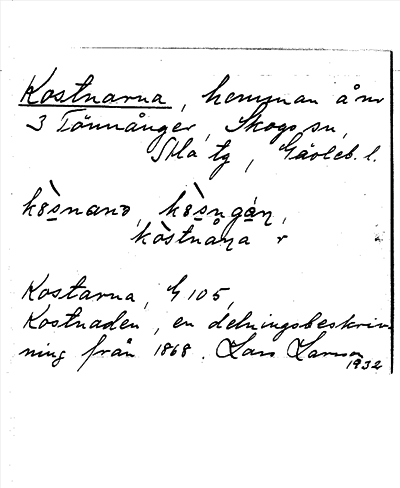 Kostnarna, hemman å nr
3 Tönnånger, Skogs sn,
Ala tg, Gävleb. l.
kòsnanə, kòsngán,
kòstnåṇa r
Kostarna, G 105,
Kostnaden, en delningsbeskriv
ning från 1868. Lars Larsson
1932